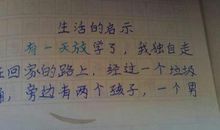 生活的启示
有一天放学了,我独自走
在回家的路上,经过一个垃圾
桶,旁边有两个孩子,一个男